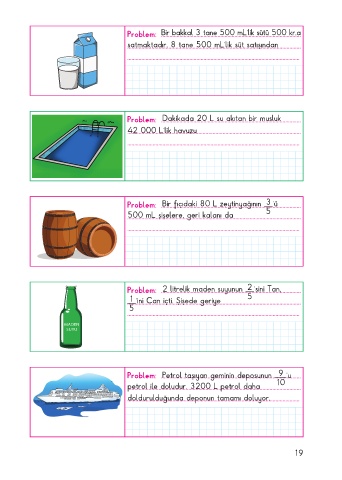 Problem: Bir bakkal 3 tane 500 mL'lik sütü 500 kr.a
satmaktadır. 8 tane 500 mL'lik süt satışından
Problem: Dakikada 20 L su akıtan bir musluk
42 000 L'lik havuzu
Problem: Bir fıçıdaki 80 L zeytinyağının 3/5 ü
500 mL şişelere, geri kalanı da
Problem: 2 litrelik maden suyunun 2/5 sini Tan,
1/5 ini Can içti. Şişede geriye
MADEN
SUYU
Problem: Petrol taşıyan geminin deposunun 9/10 u
petrol ile doludur. 3200 L petrol daha
doldurulduğunda deponun tamamı doluyor.
19